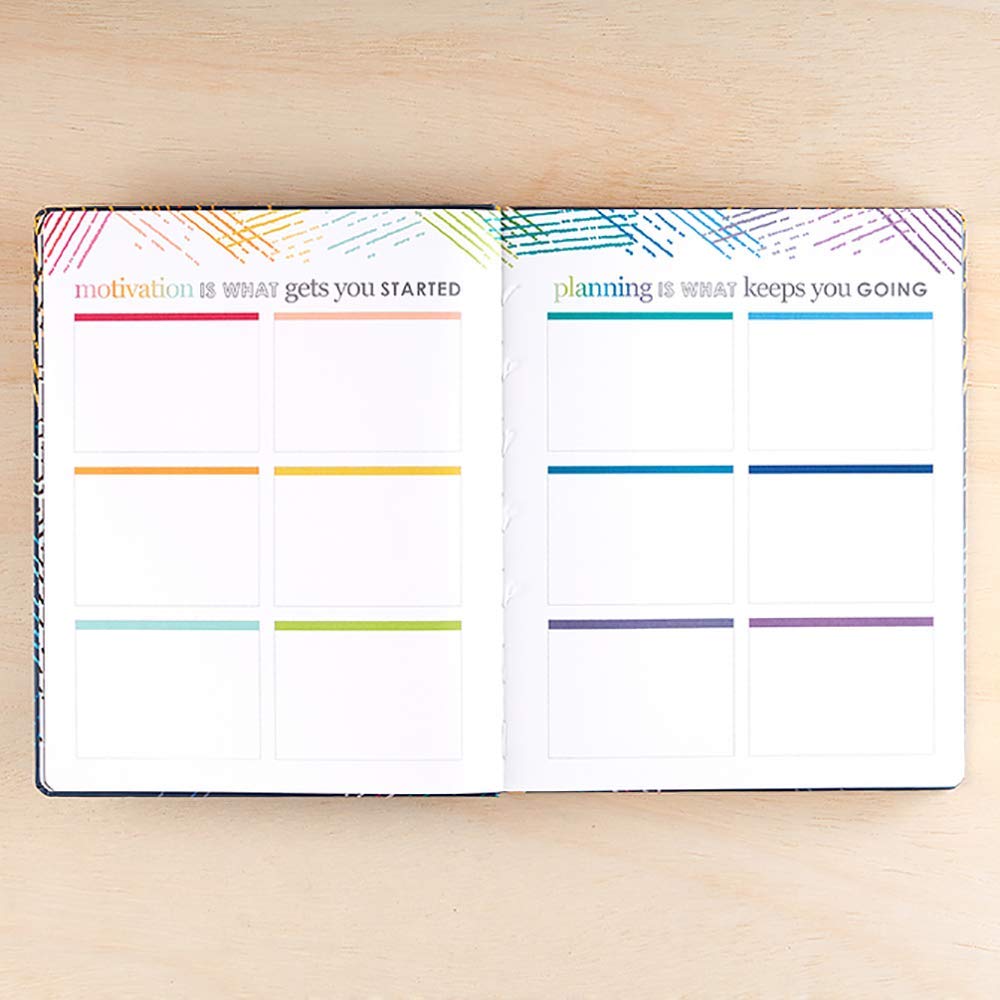 motivation IS WHAT gets you STARTED
planning IS WHAT keeps you GOING